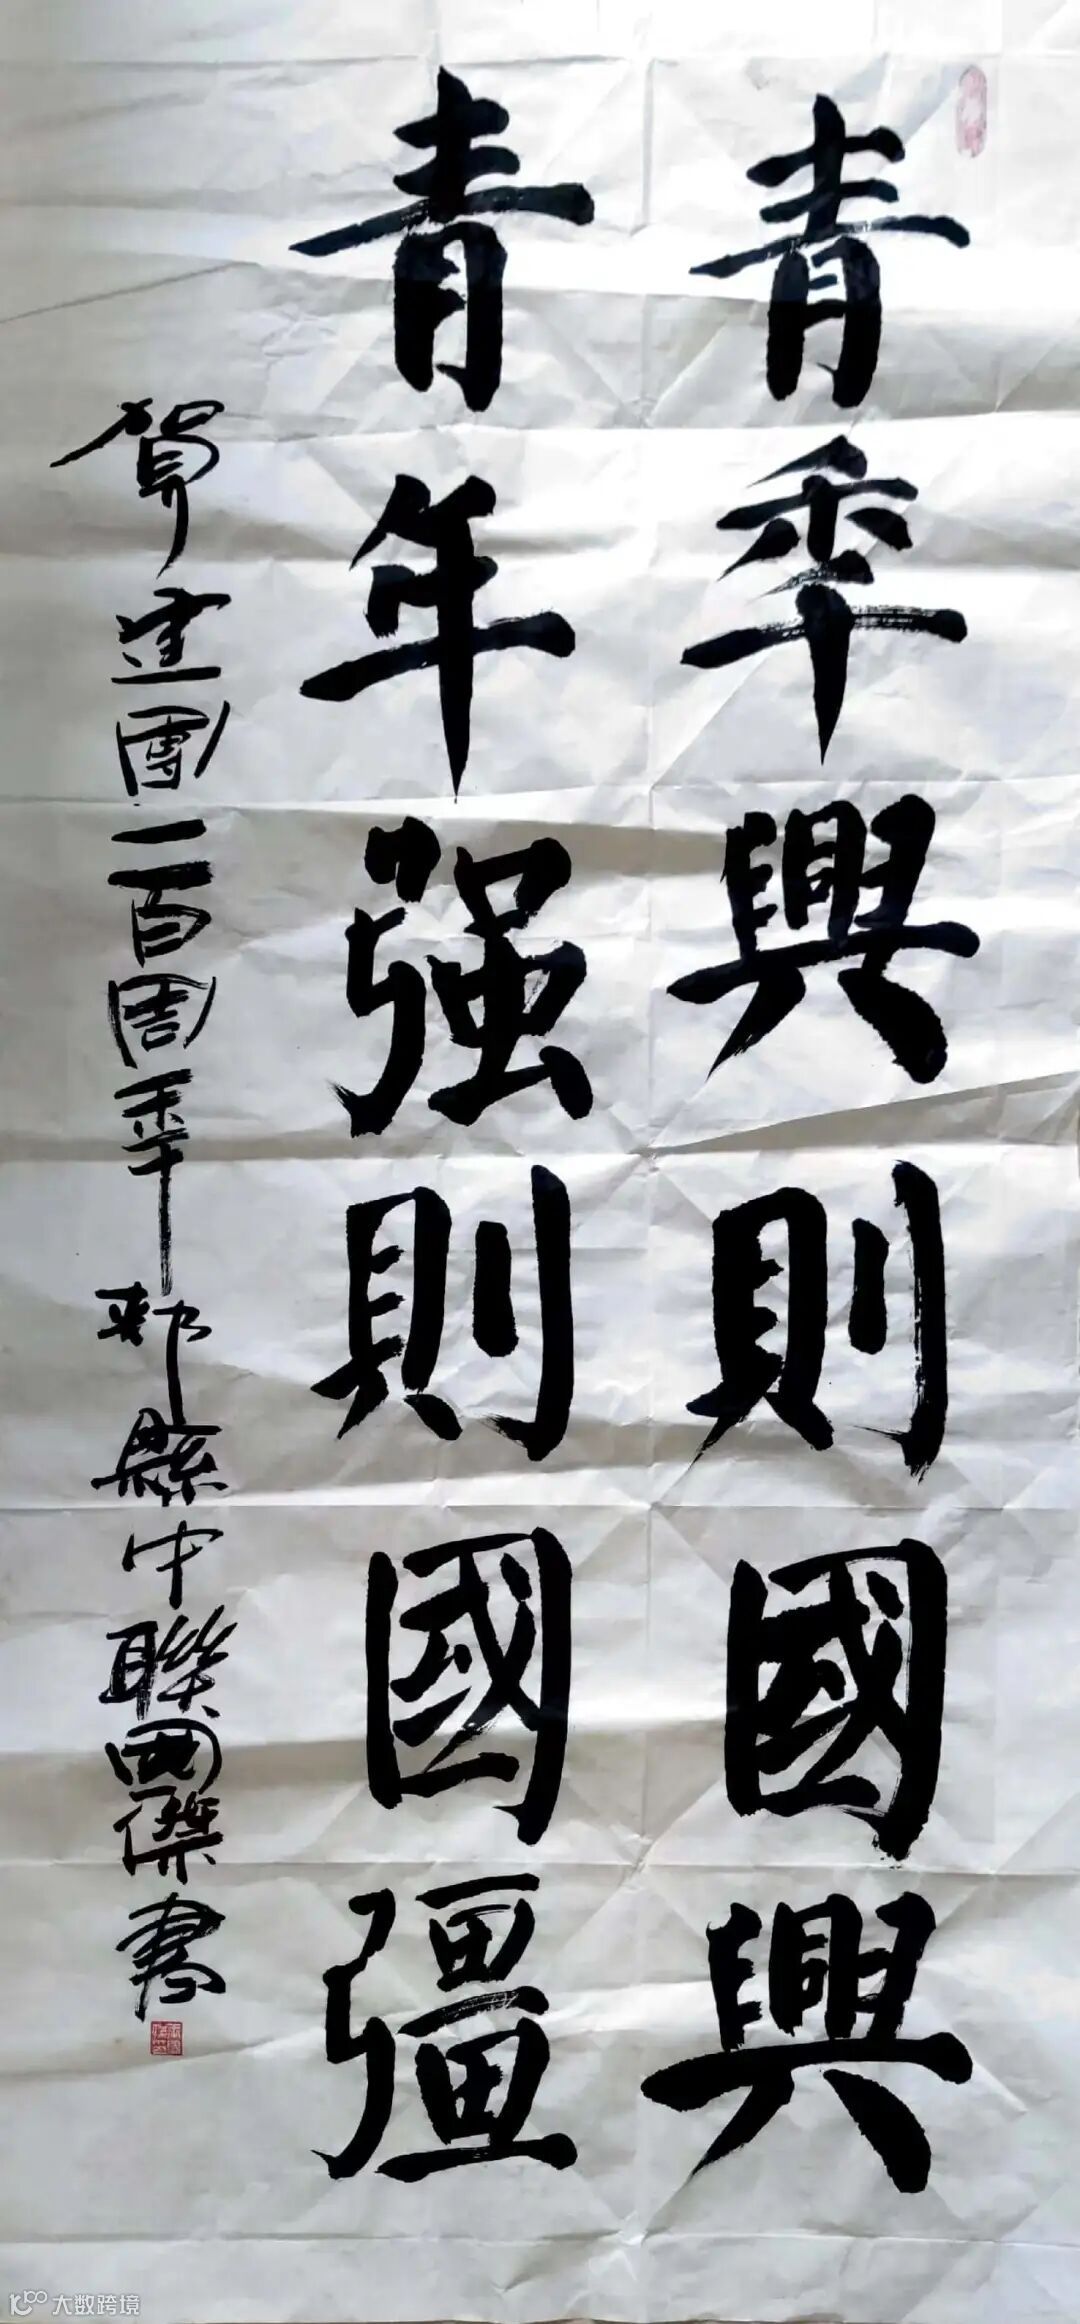 青年興則國興
青年强則國彊
賀建團一百周年郟縣中聯國傑書
大数跨境